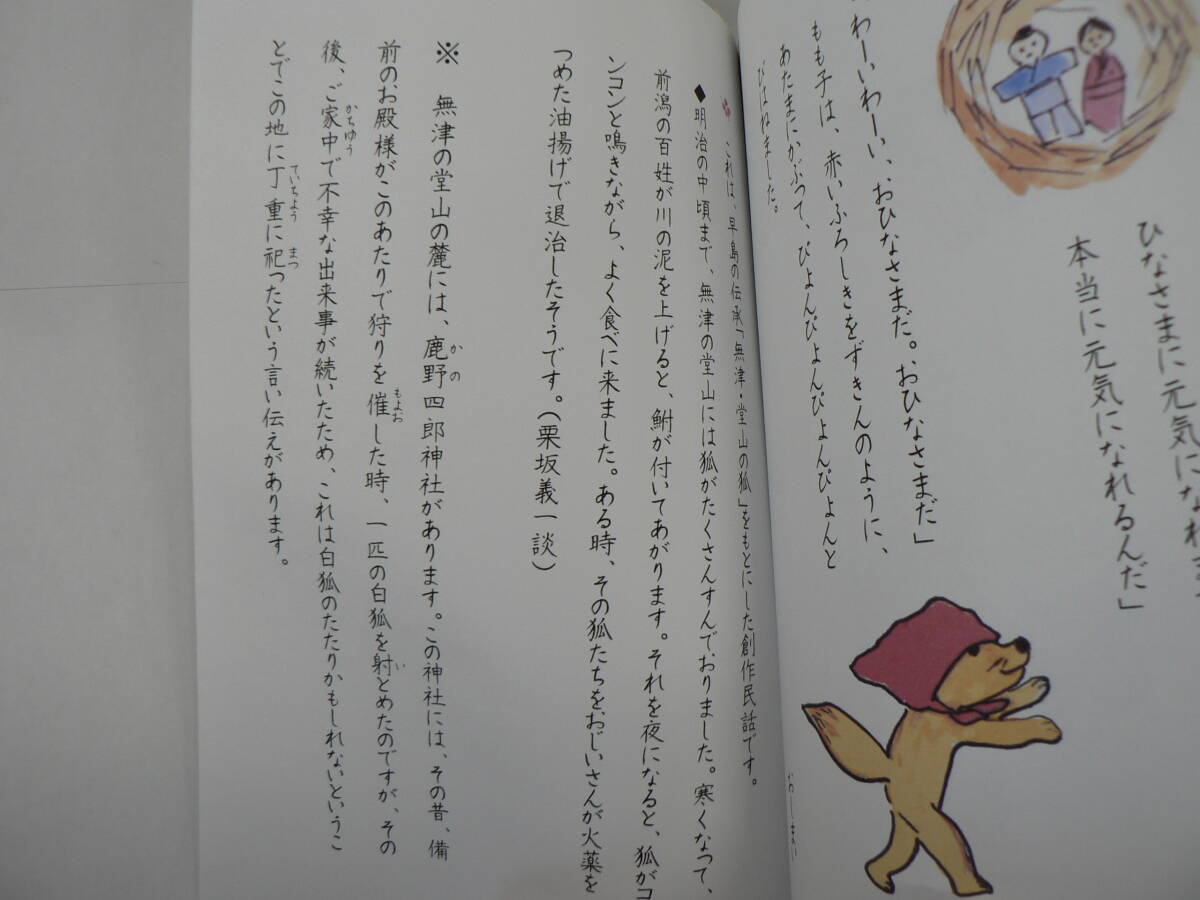 ひなさまに元気になれ
本当に元気になれるんだ」
わーいわーい、おひなさまだ。おひなさまだ」
もも子は、赤いふろしきをずきんのように、
あたまにかぶって、ぴょんぴょんぴょんぴょんと
びはねました。
おしまい
これは、早島の伝承「無津・堂山の狐」をもとにした創作民話です。
◆明治の中頃まで、無津の堂山には狐がたくさんすんでおりました。寒くなって、
前潟の百姓が川の泥を上げると、鮒が付いてあがります。それを夜になると、狐がコ
ンコンと鳴きながら、よく食べに来ました。ある時、その狐たちをおじいさんが火薬を
つめた油揚げで退治したそうです。(栗坂義一談)
※　無津の堂山の麓には、鹿野四郎神社があります。この神社には、その昔、備
かの
前のお殿様がこのあたりで狩りを催した時、一匹の白狐を射とめたのですが、その
もよお
い
後、ご家中で不幸な出来事が続いたため、これは白狐のたたりかもしれないというこ
かちゆう
とでこの地に丁重に祀ったという言い伝えがあります。
ていちよう
まつ